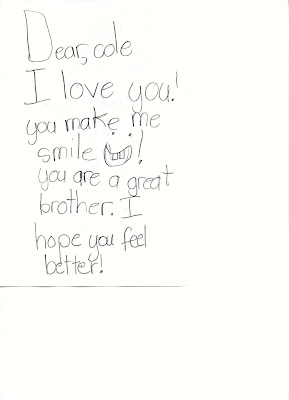 Dear, cole
I love you!
you make me
smile !
you are a great
brother. I
hope you feel
better!